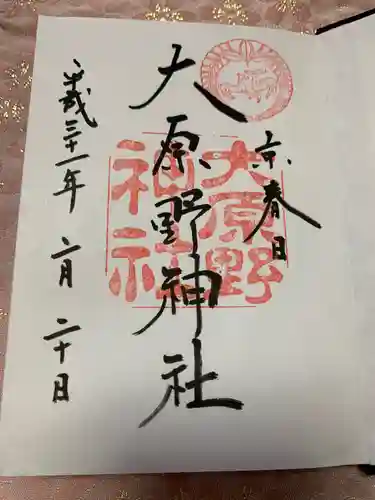 京春日
大原野神社
平成三十一年 月二十日
大原野
神社